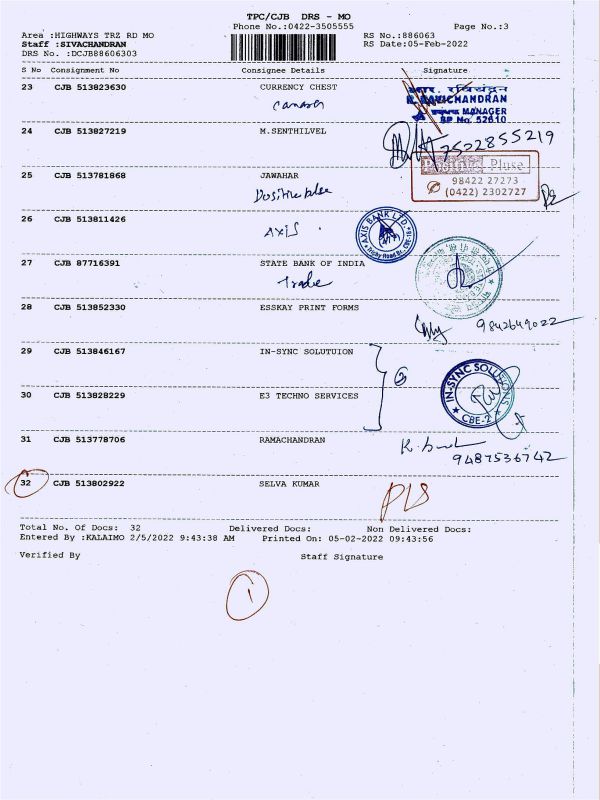 TPC/CJB DRS - MO
Phone No.:0422-3505555 Page No.:3
Area :HIGHWAYS TRZ RD MO RS No.:886063
Staff :SIVACHANDRAN RS Date:05-Feb-2022
DRS No. :DCJB88606303
S No Consignment No Consignee Details Signature
23 CJB 513823630 CURRENCY CHEST
Canara
R. RAVICHANDRAN
MANAGER
SP No. 52610
24 CJB 513827219 M.SENTHILVEL
7502855219
25 CJB 513781868 JAWAHAR
Positive Pluse
98422 27273
(0422) 2302727
26 CJB 513811426
AXIS
AXIS BANK LTD.
27 CJB 87716391 STATE BANK OF INDIA
Trade
28 CJB 513852330 ESSKAY PRINT FORMS
9842649022
29 CJB 513846167 IN-SYNC SOLUTUION
2
IN-SYNC SOLUTIONS
CBE-2
30 CJB 513828229 E3 TECHNO SERVICES
31 CJB 513778706 RAMACHANDRAN
9487536742
32 CJB 513802922 SELVA KUMAR
Total No. Of Docs: 32 Delivered Docs: Non Delivered Docs:
Entered By :KALAIMO 2/5/2022 9:43:38 AM Printed On: 05-02-2022 09:43:56
Verified By Staff Signature
1